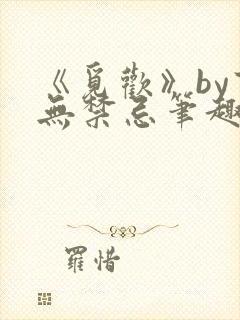 《覓歡》by
無禁忌筆趣
羅惜